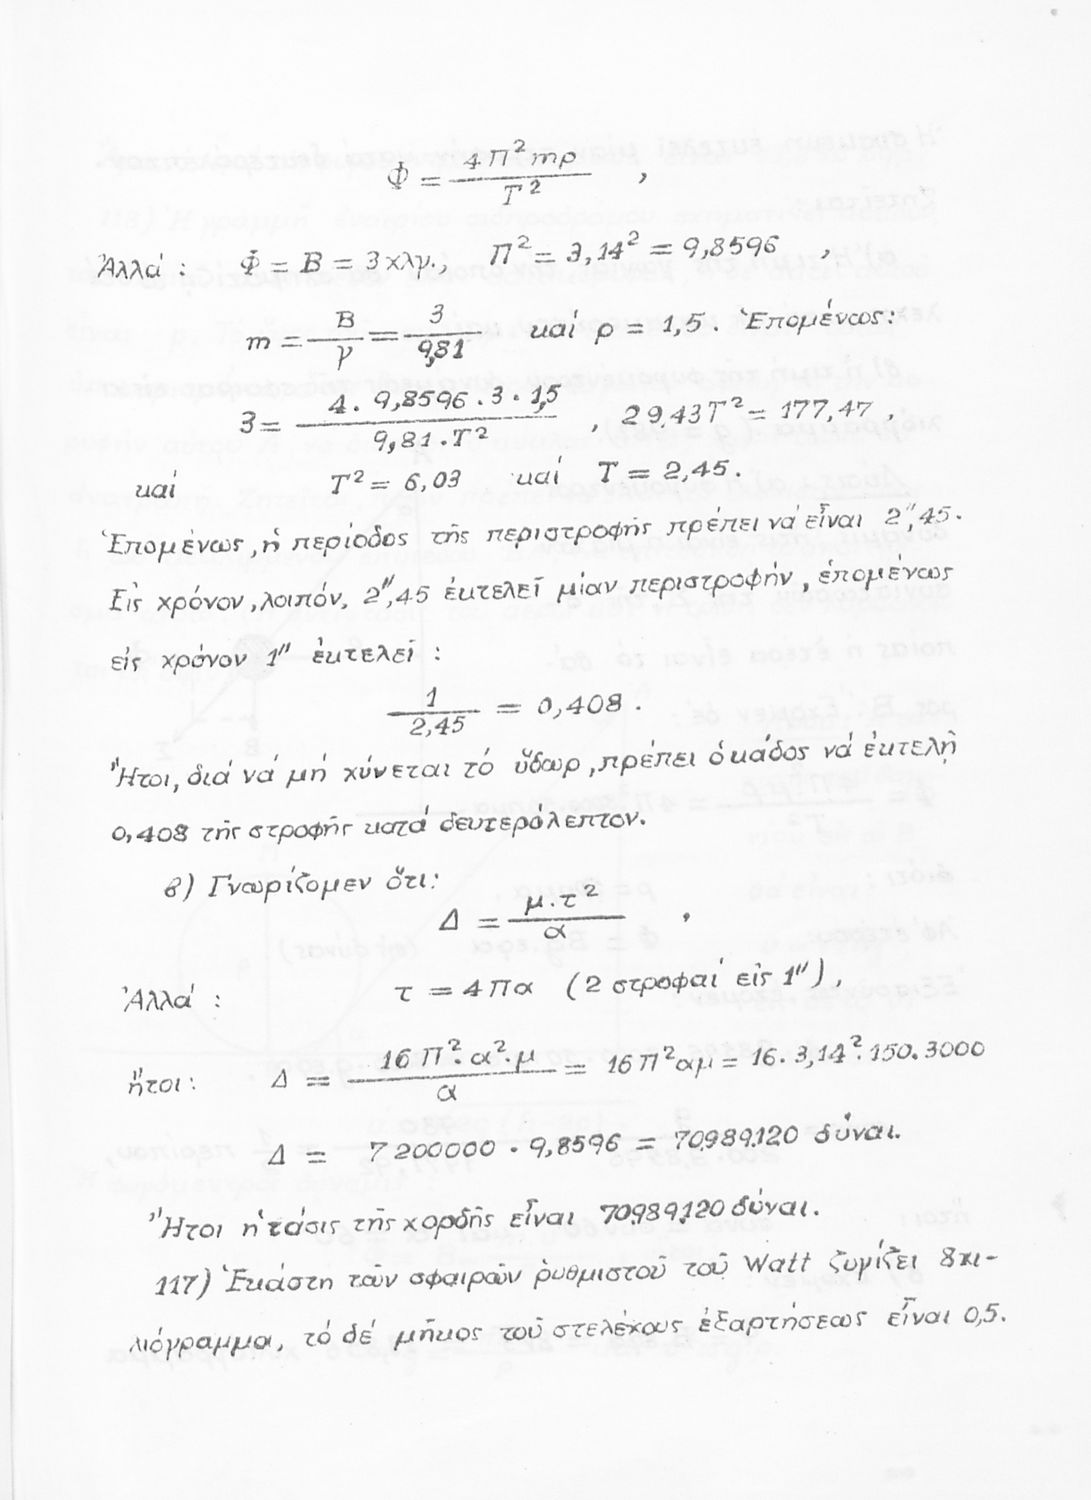 Φ = 4Π²mρ / T² ,
Ἀλλά : Φ = B = 3 χλγ., Π² = 3,14² = 9,8596 ,
m = B / γ = 3 / 9,81 καί ρ = 1,5. Ἑπομένως:
3 = 4. 9,8596 . 3 . 1,5 / 9,81 . T² , 29.43T² = 177,47 ,
καί T² = 6,03 καί T = 2,45.
Ἑπομένως, ἡ περίοδος τῆς περιστροφῆς πρέπει νά εἶναι 2″,45.
Εἰς χρόνον, λοιπόν, 2″,45 ἐκτελεῖ μίαν περιστροφήν, ἑπομένως
εἰς χρόνον 1″ ἐκτελεῖ :
1 / 2,45 = 0,408 .
Ἤτοι, διά νά μή χύνεται τό ὕδωρ, πρέπει ὁ κάδος νά ἐκτελῇ
0,408 τῆς στροφῆς κατά δευτερόλεπτον.
β) Γνωρίζομεν ὅτι:
Δ = μ.τ² / α ,
Ἀλλά : τ = 4Πα (2 στροφαί εἰς 1″),
ἤτοι: Δ = 16Π².α².μ / α = 16Π²αμ = 16. 3,14².150.3000
Δ = 7200000 . 9,8596 = 70.989.120 δύναι.
Ἤτοι ἡ τάσις τῆς χορδῆς εἶναι 70.989.120 δύναι.
117) Ἑκάστη τῶν σφαιρῶν ῥυθμιστοῦ τοῦ Watt ζυγίζει 8 χι-
λιόγραμμα, τό δέ μῆκος τοῦ στελέχους ἐξαρτήσεως εἶναι 0,5.